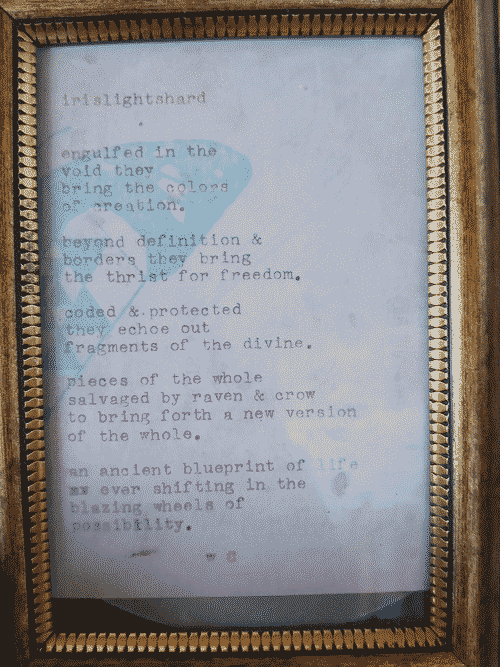 irislightshard
engulfed in the
void they
bring the colors
of creation.
beyond definition &
borders they bring
the thrist for freedom.
coded & protected
they echoe out
fragments of the divine.
pieces of the whole
salvaged by raven & crow
to bring forth a new version
of the whole.
an ancient blueprint of life
ever shifting in the
blazing wheels of
possibility.